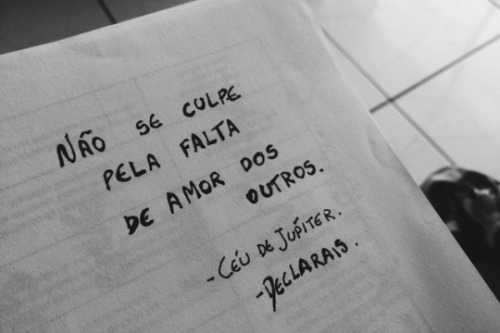 NÃO SE CULPE
PELA FALTA
DE AMOR DOS
OUTROS.
-CÉU DE JÚPITER.
-DECLARAIS.